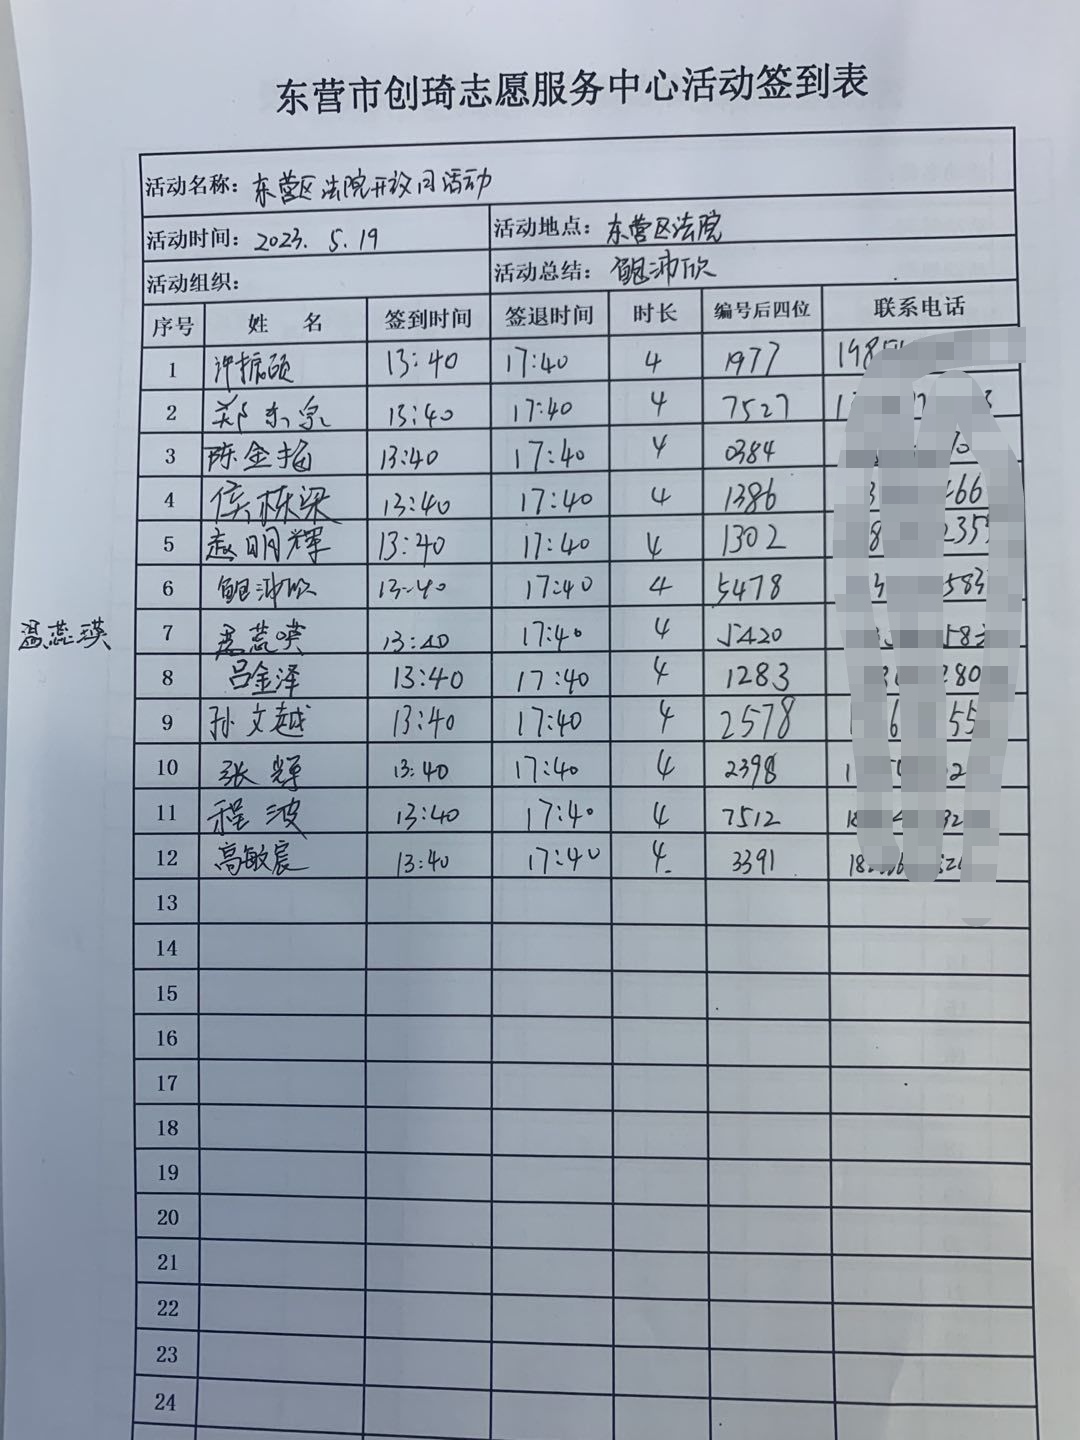 东营市创琦志愿服务中心活动签到表
活动名称：东营区法院开放日活动
活动时间：2023.5.19 活动地点：东营区法院
活动组织： 活动总结：鲍沛欣
序号 姓 名 签到时间 签退时间 时长 编号后四位 联系电话
1 许振硕 13:40 17:40 4 1977
2 郑东泉 13:40 17:40 4 7527
3 陈金梅 13:40 17:40 4 0384
4 侯栋梁 13:40 17:40 4 1386
5 赵明辉 13:40 17:40 4 1302
6 鲍沛欣 13:40 17:40 4 5478
温蕊瑛 7 温蕊瑛 13:40 17:40 4 5420
8 吕金泽 13:40 17:40 4 1283
9 孙文越 13:40 17:40 4 2578
10 张辉 13:40 17:40 4 2398
11 程波 13:40 17:40 4 7512
12 高敏宸 13:40 17:40 4 3391
13
14
15
16
17
18
19
20
21
22
23
24